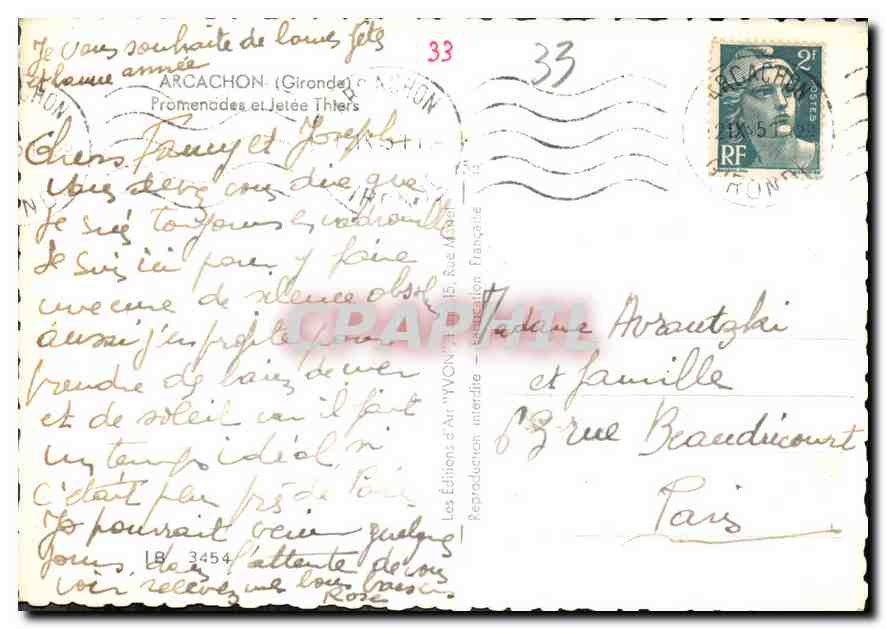 Je vous souhaite de bonnes fêtes
et bonne année
33
33
ARCACHON (Gironde)
Promenades et Jetée Thiers
Chers Fanny et Joseph
vous devez vous dire que
Je suis toujours en vadrouille
Je suis ici pour y faire
une cure de silence absolu
aussi j'en profite pour
prendre des bains de mer
et de soleil car il fait
un temps idéal si
c'était plus près de Paris
Jo pourrait venir quelques
jours dans l'attente de vous
voir recevez mes bons baisers
Rose
LB 3454
Les Éditions d'Art "YVON", 15, Rue Martel
Reproduction interdite — Fabrication Française
2F
POSTES
RF
ARCACHON
GIRONDE
Madame Avrautzki
et famille
63 rue Beaudricourt
Paris
CPAPHIL